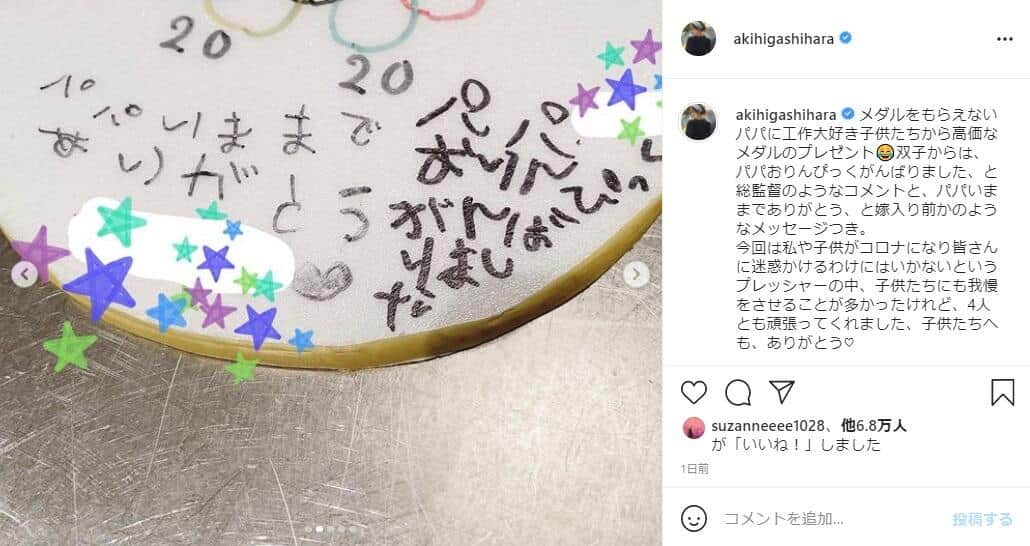 20
20
パパいままで
ありがとう
パパ
おりんぴっ
がんば
りまし
た
akihigashihara
akihigashihara メダルをもらえない
パパに工作大好き子供たちから高価な
メダルのプレゼント😂双子からは、
パパおりんぴっくがんばりました、と
総監督のようなコメントと、パパいま
までありがとう、と嫁入り前かのよう
なメッセージつき。
今回は私や子供がコロナになり皆さん
に迷惑かけるわけにはいかないという
プレッシャーの中、子供たちにも我慢
をさせることが多かったけれど、4人
とも頑張ってくれました、子供たちへ
も、ありがとう♡
suzanneeee1028、他6.8万人
が「いいね！」しました
1日前
コメントを追加...
投稿する